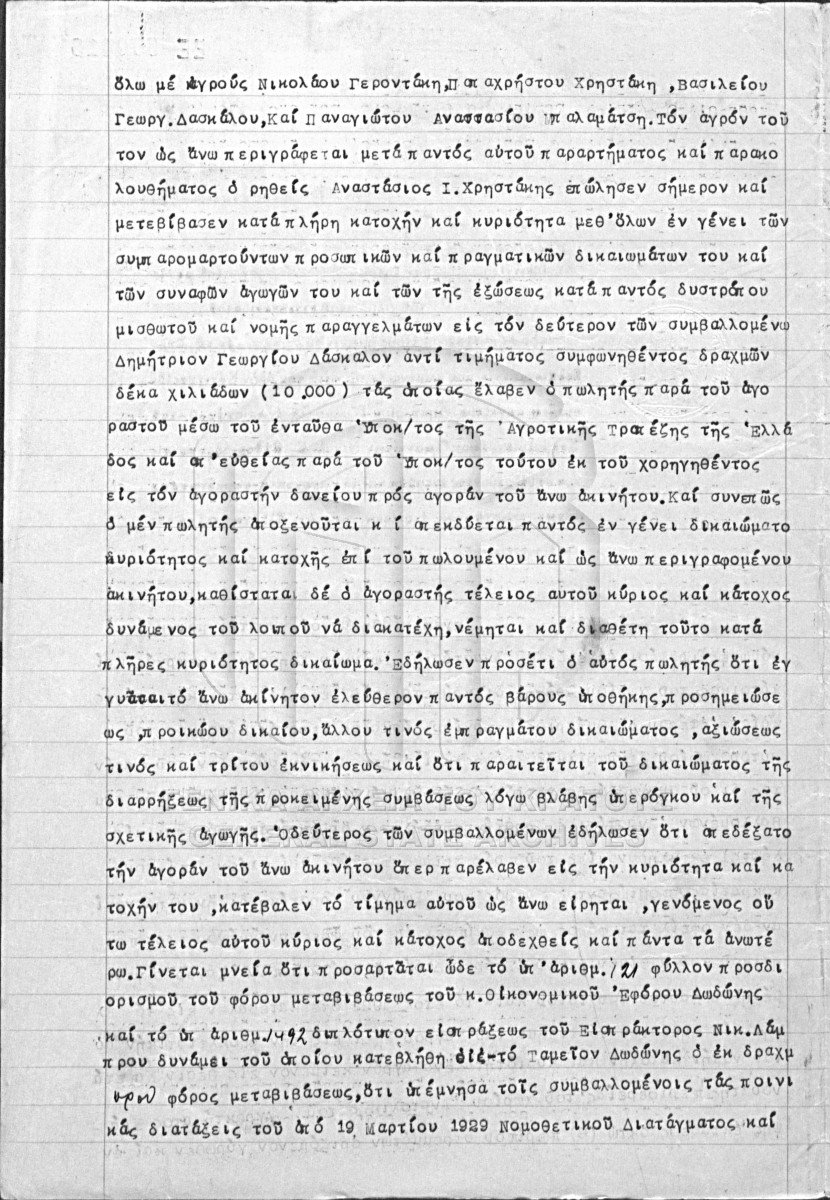 ὅλω μέ ἀγρούς Νικολάου Γεροντάκη,Παπαχρήστου Χρηστάκη ,Βασιλείου
Γεωργ.Δασκάλου,Καί Παναγιώτου Αναστασίου Μπαλαμάτση.Τόν ἀγρόν τοῦ
τον ὡς ἄνω περιγράφεται μετά παντός αὐτοῦ παραρτήματος καί παρακο
λουθήματος ὁ ρηθείς Αναστάσιος Ι.Χρηστάκης ἐπώλησεν σήμερον καί
μετεβίβασεν κατά πλήρη κατοχήν καί κυριότητα μεθ'ὅλων ἐν γένει τῶν
συμπαρομαρτούντων προσωπικῶν καί πραγματικῶν δικαιωμάτων του καί
τῶν συναφῶν ἀγωγῶν του καί τῶν τῆς ἐξώσεως κατά παντός δυστρόπου
μισθωτοῦ καί νομῆς παραγγελμάτων είς τόν δεύτερον τῶν συμβαλλομένω
Δημήτριον Γεωργίου Δάσκαλον ἀντί τιμήματος συμφωνηθέντος δραχμῶν
δέκα χιλιάδων (10.000) τάς ὁποίας ἔλαβεν ὁ πωλητής παρά τοῦ ἀγο
ραστοῦ μέσω τοῦ ἐνταῦθα Ὑποκ/τος τῆς Ἀγροτικῆς Τραπέζης τῆς Ἑλλά
δος καί ἀπ'εὐθείας παρά τοῦ Ὑποκ/τος τούτου ἐκ τοῦ χορηγηθέντος
είς τόν ἀγοραστήν δανείου πρός ἀγοράν τοῦ ἄνω ἀκινήτου.Καί συνεπῶς
ὁ μέν πωλητής ἀποξενοῦται κ ί ἀπεκδύεται παντός ἐν γένει δικαιώματο
κυριότητος καί κατοχῆς ἐπί τοῦ πωλουμένου καί ὡς ἄνω περιγραφομένου
ἀκινήτου,καθίσταται δέ ὁ ἀγοραστής τέλειος αὐτοῦ κύριος καί κάτοχος
δυνάμενος τοῦ λοιποῦ νά διακατέχη,νέμηται καί διαθέτη τοῦτο κατά
πλῆρες κυριότητος δικαίωμα.Ἐδήλωσεν προσέτι ὁ αὐτός πωλητής ὅτι ἐγ
γυᾶται τό ἄνω ἀκίνητον ἐλεύθερον παντός βάρους ὑποθήκης,προσημειώσε
ως ,προικώου δικαίου,ἄλλου τινός ἐμπραγμάτου δικαιώματος ,ἀξιώσεως
τινός καί τρίτου ἐκνικήσεως καί ὅτι παραιτεῖται τοῦ δικαιώματος τῆς
διαρρήξεως τῆς προκειμένης συμβάσεως λόγω βλάβης ὑπερόγκου καί τῆς
σχετικῆς ἀγωγῆς.Ὁδεύτερος τῶν συμβαλλομένων ἐδήλωσεν ὅτι ἀπεδέξατο
τήν ἀγοράν τοῦ ἄνω ἀκινήτου ὅπερ παρέλαβεν είς τήν κυριότητα καί κα
τοχήν του ,κατέβαλεν τό τίμημα αὐτοῦ ὡς ἄνω είρηται ,γενόμενος οὕ
τω τέλειος αὐτοῦ κύριος καί κάτοχος ἀποδεχθείς καί πάντα τά ἀνωτέ
ρω.Γίνεται μνεία ὅτι προσαρτᾶται ὧδε τό ὑπ'ἀριθμ.121 φύλλον προσδι
ορισμοῦ τοῦ φόρου μεταβιβάσεως τοῦ κ.Οἰκονομικοῦ Ἐφόρου Δωδώνης
καί τό ὑπ ἀριθμ.1492 διπλότυπον είσπράξεως τοῦ Είσπράκτορος Νικ.Λάμ
πρου δυνάμει τοῦ ὁποίου κατεβλήθη είς τό Ταμεῖον Δωδώνης ὁ ἐκ δραχμ
φόρος μεταβιβάσεως,ὅτι ὑπέμνησα τοῖς συμβαλλομένοις τάς ποινι
κάς διατάξεις τοῦ ἀπό 19 Μαρτίου 1929 Νομοθετικοῦ Διατάγματος καί
ΓΕΝΙΚΑ ΑΡΧΕΙΑ ΤΟΥ ΚΡΑΤΟΥΣ
GENERAL STATE ARCHIVES